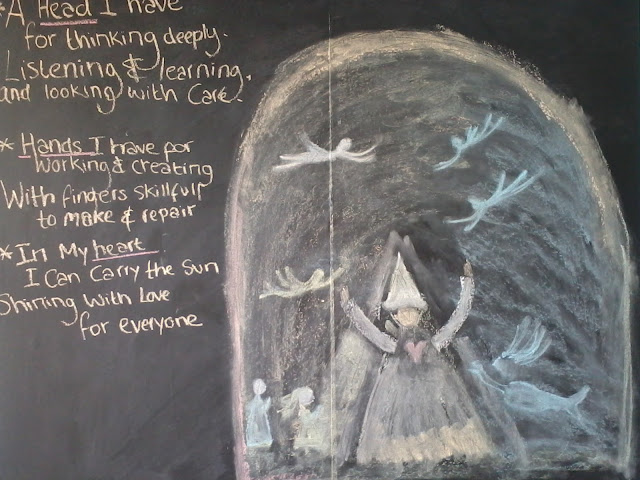 *A Head I have
for thinking deeply.
Listening & learning,
and looking with Care.
* Hands I have for
working & creating
With fingers skillfull
to make & repair
* In My heart
I Can Carry the Sun
Shining With Love
for everyone